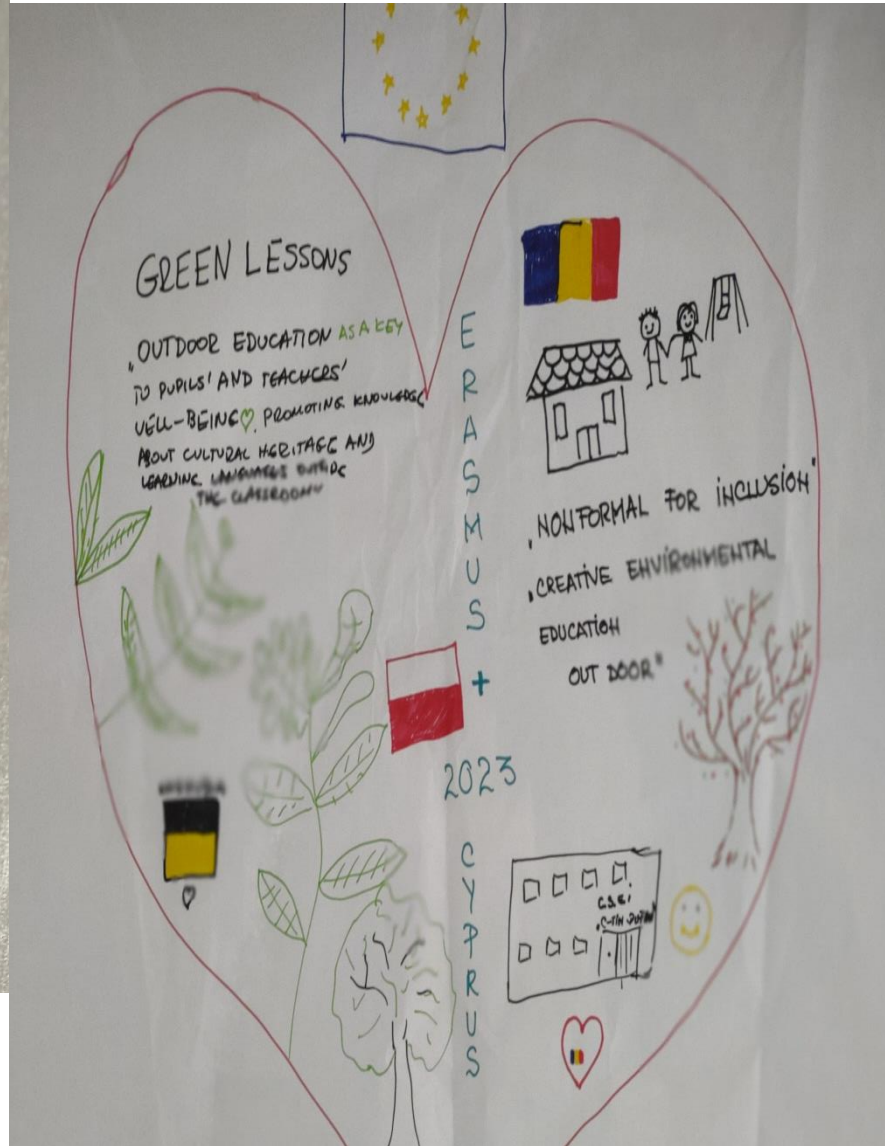 GREEN LESSONS
„OUTDOOR EDUCATION AS A KEY
TO PUPILS' AND TEACHERS'
WELL-BEING, PROMOTING KNOWLEDGE
ABOUT CULTURAL HERITAGE AND
LEARNING LANGUAGES OUTSIDE
THE CLASSROOM"
ERASMUS
+
2023
CYPRUS
„NONFORMAL FOR INCLUSION"
„CREATIVE ENVIRONMENTAL
EDUCATION
OUT DOOR"
C.S.E.I